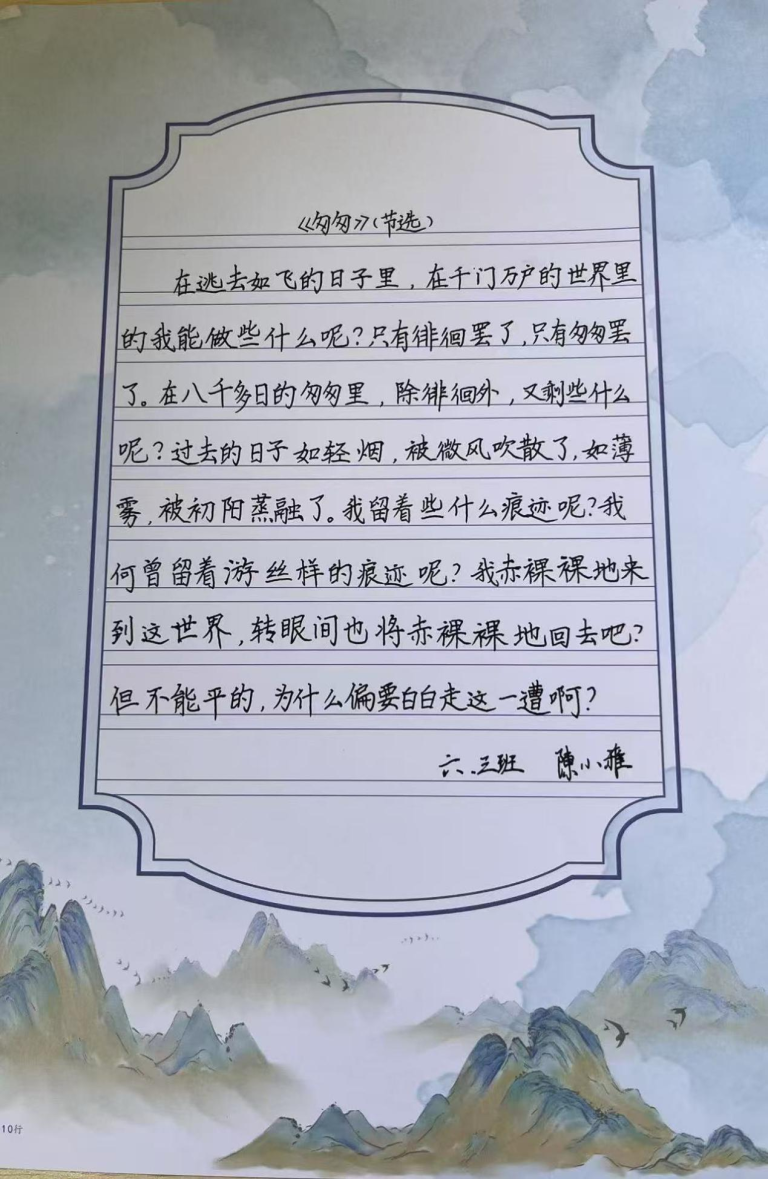 《匆匆》(节选)
在逃去如飞的日子里，在千门万户的世界里
的我能做些什么呢？只有徘徊罢了，只有匆匆罢
了。在八千多日的匆匆里，除徘徊外，又剩些什么
呢？过去的日子如轻烟，被微风吹散了，如薄
雾，被初阳蒸融了。我留着些什么痕迹呢？我
何曾留着游丝样的痕迹呢？我赤裸裸地来
到这世界，转眼间也将赤裸裸地回去吧？
但不能平的，为什么偏要白白走这一遭啊？
六.三班 陳小雅
10行